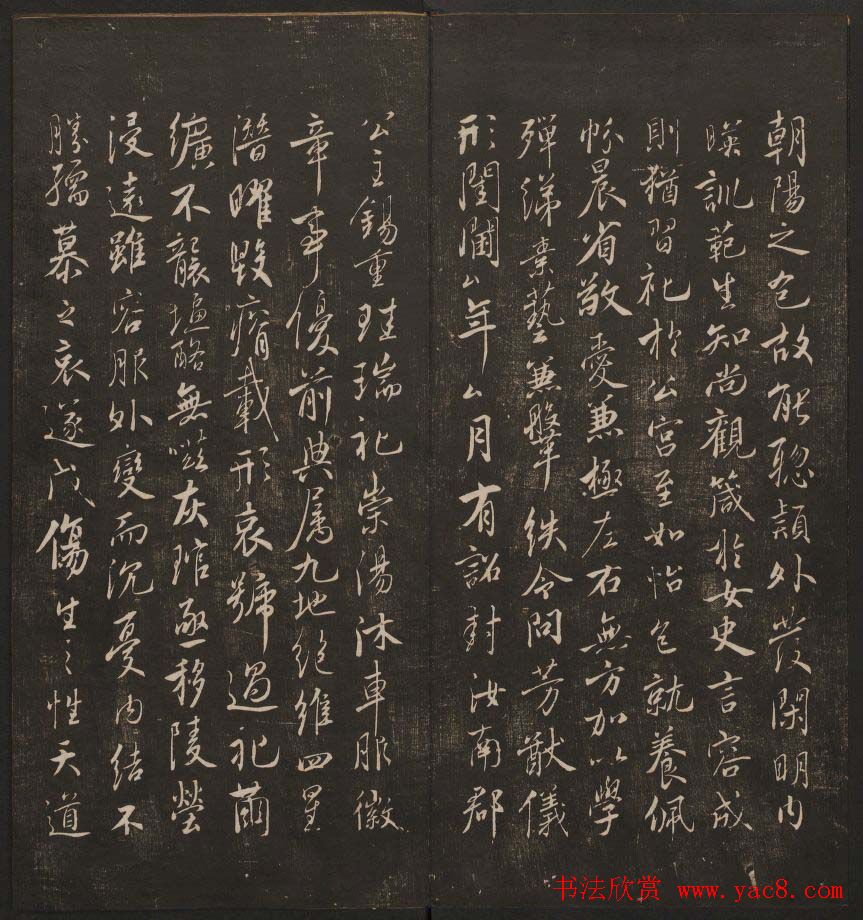 朝陽之色故能聦穎外發閑明内
暎訓範生知尚觀箴於女史言容成
則猶習礼於公宮至如怡色就養佩
帉晨省敬愛兼極左右無方加以學
殫綈素藝兼鞶紩令問芳猷儀
形閨閫厶年厶月有詔封汝南郡
公主錫重珪瑞礼崇湯沐車服徽
章事優前典属九地絶維四星
潛曜毀瘠載形哀號過礼繭
纊不襲塩酪無嗞灰琯亟移陵塋
浸遠雖容服外變而沉憂内結不
勝孺慕之哀遂成傷生之性天道
书法欣赏 www.yac8.com